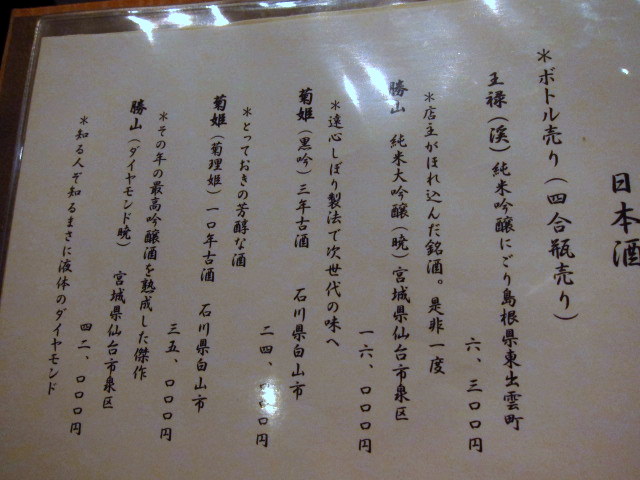 日本酒
＊ボトル売り（四合瓶売り）
王禄（渓）純米吟醸にごり島根県東出雲町
六、三〇〇円
＊店主がほれ込んだ銘酒。是非一度
勝山　純米大吟醸（暁）宮城県仙台市泉区
一六、〇〇〇円
＊遠心しぼり製法で次世代の味へ
菊姫（黒吟）三年古酒　石川県白山市
二四、〇〇〇円
＊とっておきの芳醇な酒
菊姫（菊理姫）一〇年古酒　石川県白山市
三五、〇〇〇円
＊その年の最高吟醸酒を熟成した傑作
勝山（ダイヤモンド暁）　宮城県仙台市泉区
四二、〇〇〇円
＊知る人ぞ知るまさに液体のダイヤモンド